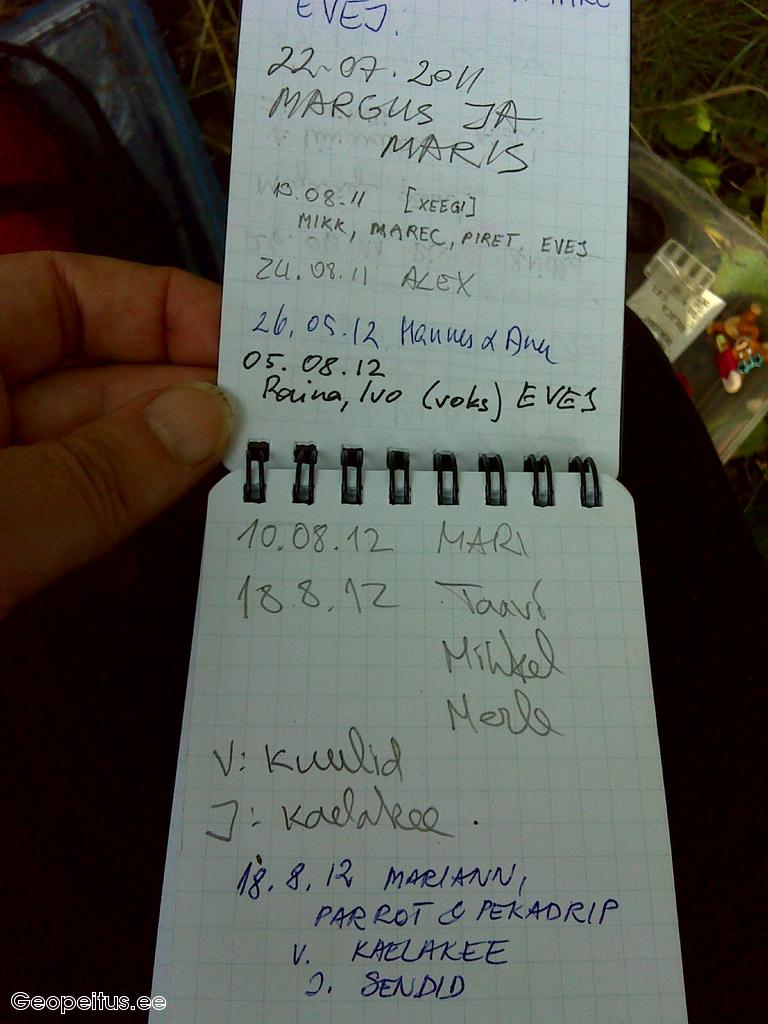 EVEJ.
22.07.2011
MARGUS JA
MARIS
13.08.11 [XEEGI]
MIKK, MAREC, PIRET EVEJ
24.08.11 ALEX
26.05.12 Hannes &
05.08.12
Raina, Ivo (voks) EVEJ
10.08.12 MARI
18.8.12 Taavi
Mihkel
Merle
V: Kuulid
J: Kaelakee.
18.8.12 MARIANN,
PARROT & PEKADRIP
V. KAELAKEE
J. SENDID
Geopeitus.ee